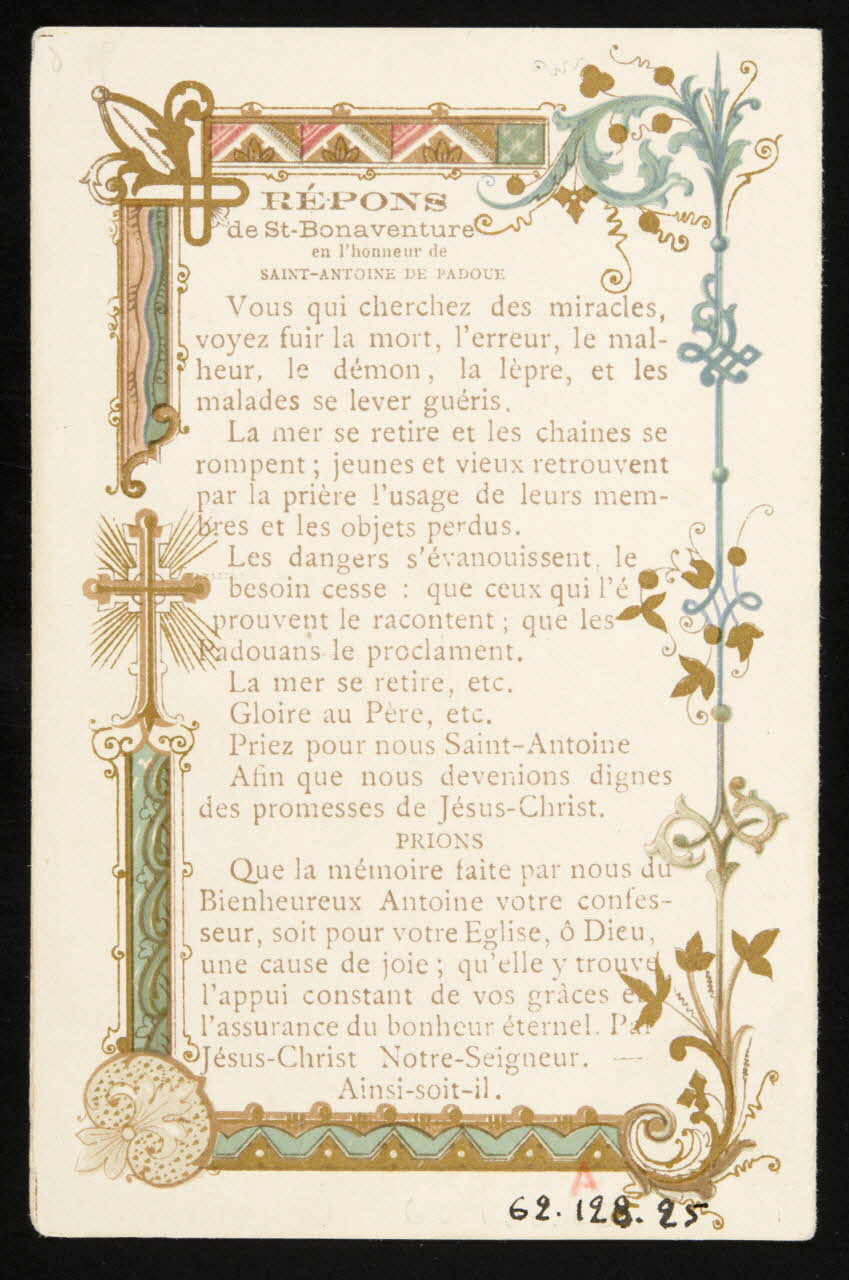 RÉPONS
de St-Bonaventure
en l'honneur de
SAINT-ANTOINE DE PADOUE
Vous qui cherchez des miracles,
voyez fuir la mort, l'erreur, le mal-
heur, le démon, la lèpre, et les
malades se lever guéris.
La mer se retire et les chaines se
rompent ; jeunes et vieux retrouvent
par la prière l'usage de leurs mem-
bres et les objets perdus.
Les dangers s'évanouissent, le
besoin cesse : que ceux qui l'é
prouvent le racontent ; que les
Padouans le proclament.
La mer se retire, etc.
Gloire au Père, etc.
Priez pour nous Saint-Antoine
Afin que nous devenions dignes
des promesses de Jésus-Christ.
PRIONS
Que la mémoire faite par nous du
Bienheureux Antoine votre confes-
seur, soit pour votre Eglise, ô Dieu,
une cause de joie ; qu'elle y trouve
l'appui constant de vos grâces et
l'assurance du bonheur éternel. Par
Jésus-Christ Notre-Seigneur. —
Ainsi-soit-il.
A
62.128.25